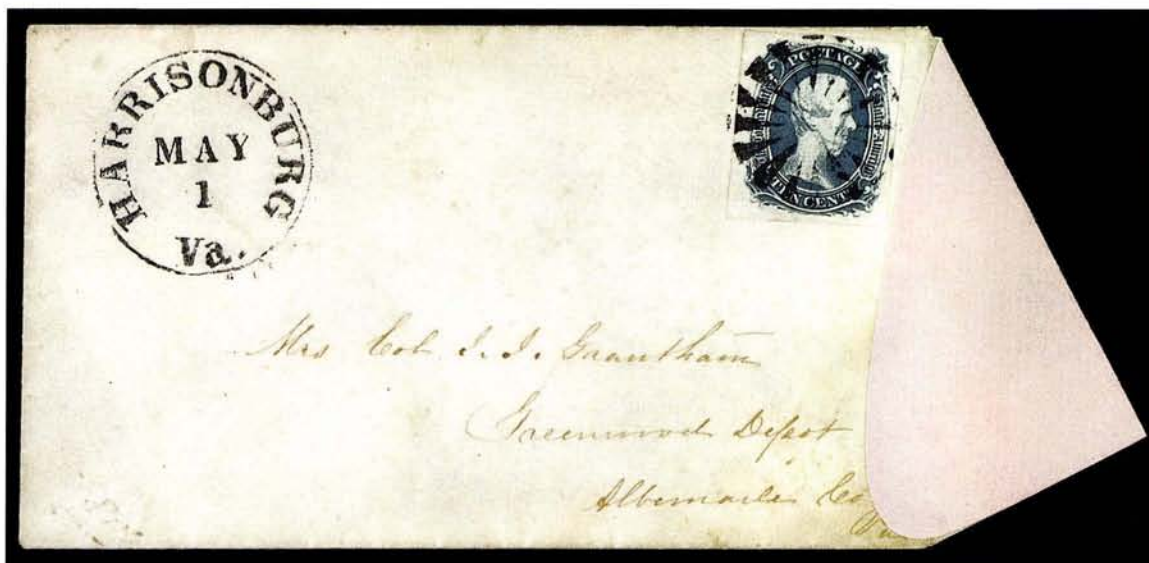 HARRISONBURG
MAY
1
Va.
POSTAGE
TEN CENTS
Mrs Col. J. J. Grantham
Greenwood Depot
Albemarle Co
Va